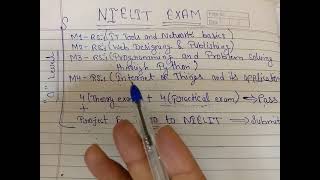 NIELIT EXAM
M1-R5: (IT Tools and Network basics)
M2-R5: (Web Designing & Publishing)
M3-R5: (Programming and Problem Solving
through Python)
M4-R5: (Internet of Things and its application
"O" Level
4 (Theory exam) + 4 (Practical exam) → Pass
+
Project to NIELIT → Submit